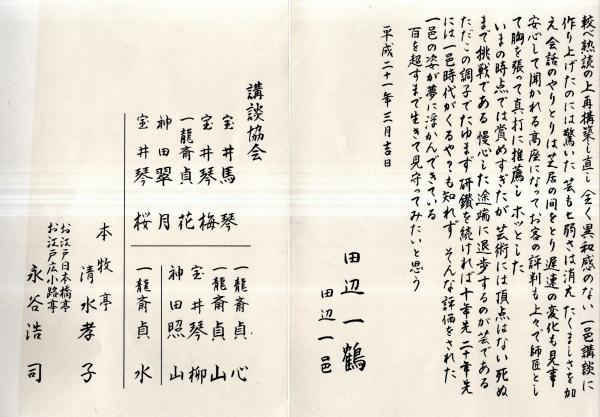 較べ熱読の上再構築し直し 全く異和感のない一邑講談に
作り上げたのには驚いた 芸もも弱さは消え たくましさを加
え 会話のやりとりは芝居の間をとり 遅速の変化も見事
安心して聞かれる高座になってお客の評判も上々で師匠とし
て胸を張って真打に推薦し ホッとした
いまの時点では賞めすぎだが芸術には頂点はない 死ぬ
まで挑戦である 慢心した途端に退歩するのが芸である
ただこの調子でたゆまず研鑽を続ければ十年先 二十年先
には一邑時代がくるや?も知れず そんな評価をされた
一邑の姿が夢に浮かんできている
百を超すまで生きて見守ってみたいと思う
平成二十一年三月吉日
田辺一鶴
田辺一邑
講談協会
宝井馬琴
宝井琴梅
一龍斎貞花
神田翠月
宝井琴桜
一龍斎貞心
一龍斎貞山
宝井琴柳
神田照山
一龍斎貞水
本牧亭
清水孝子
お江戸日本橋亭
お江戸広小路亭
永谷浩司